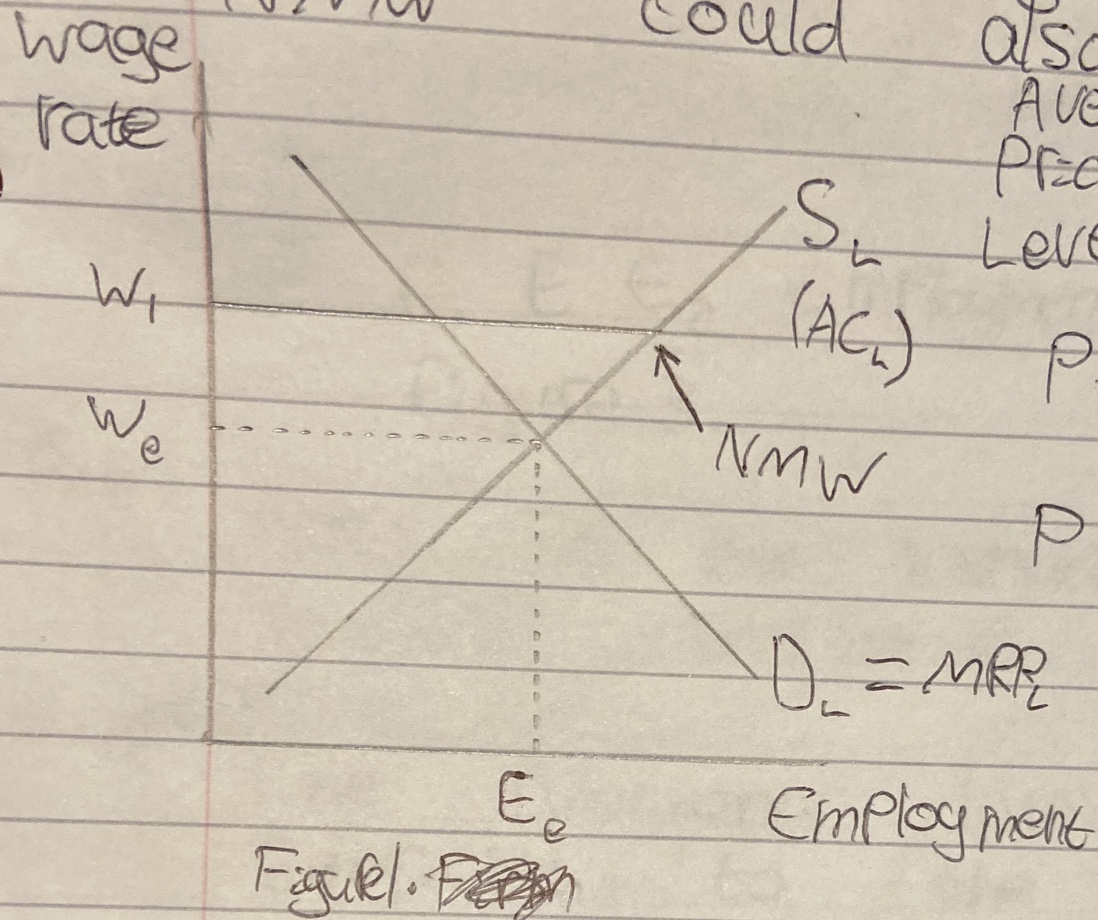 NMW could also
wage
rate
Ave
Price
Leve
S_L
(AC_L)
W_1
P
W_e
NMW
P
D_L = MRP_L
E_e
Employment
Figure 1.